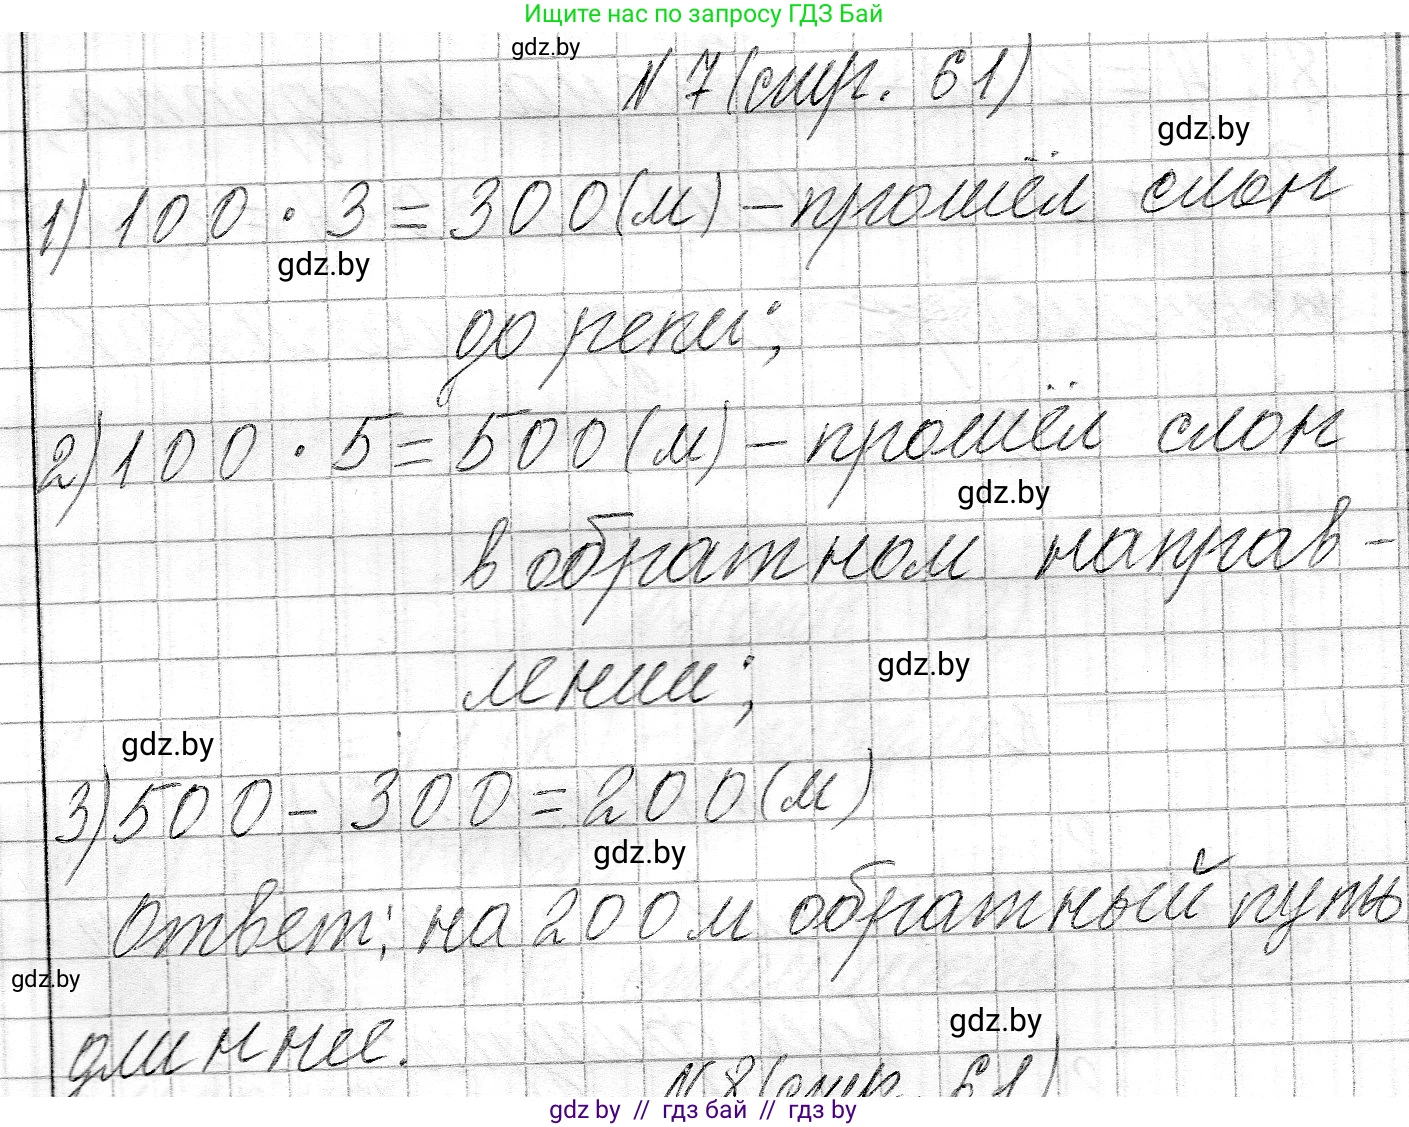 Ищите нас по запросу ГДЗ Бай
gdz.by
№ 7 (стр. 61)
gdz.by
1) 100 · 3 = 300 (м) – прошёл слон
gdz.by
до реки;
2) 100 · 5 = 500 (м) – прошёл слон
gdz.by
в обратном направ-
лении;
gdz.by
gdz.by
3) 500 - 300 = 200 (м)
gdz.by
Ответ: на 200 м обратный путь
gdz.by
длиннее.
gdz.by
№ 8 (стр. 61)
gdz by // гдз бай // гдз by